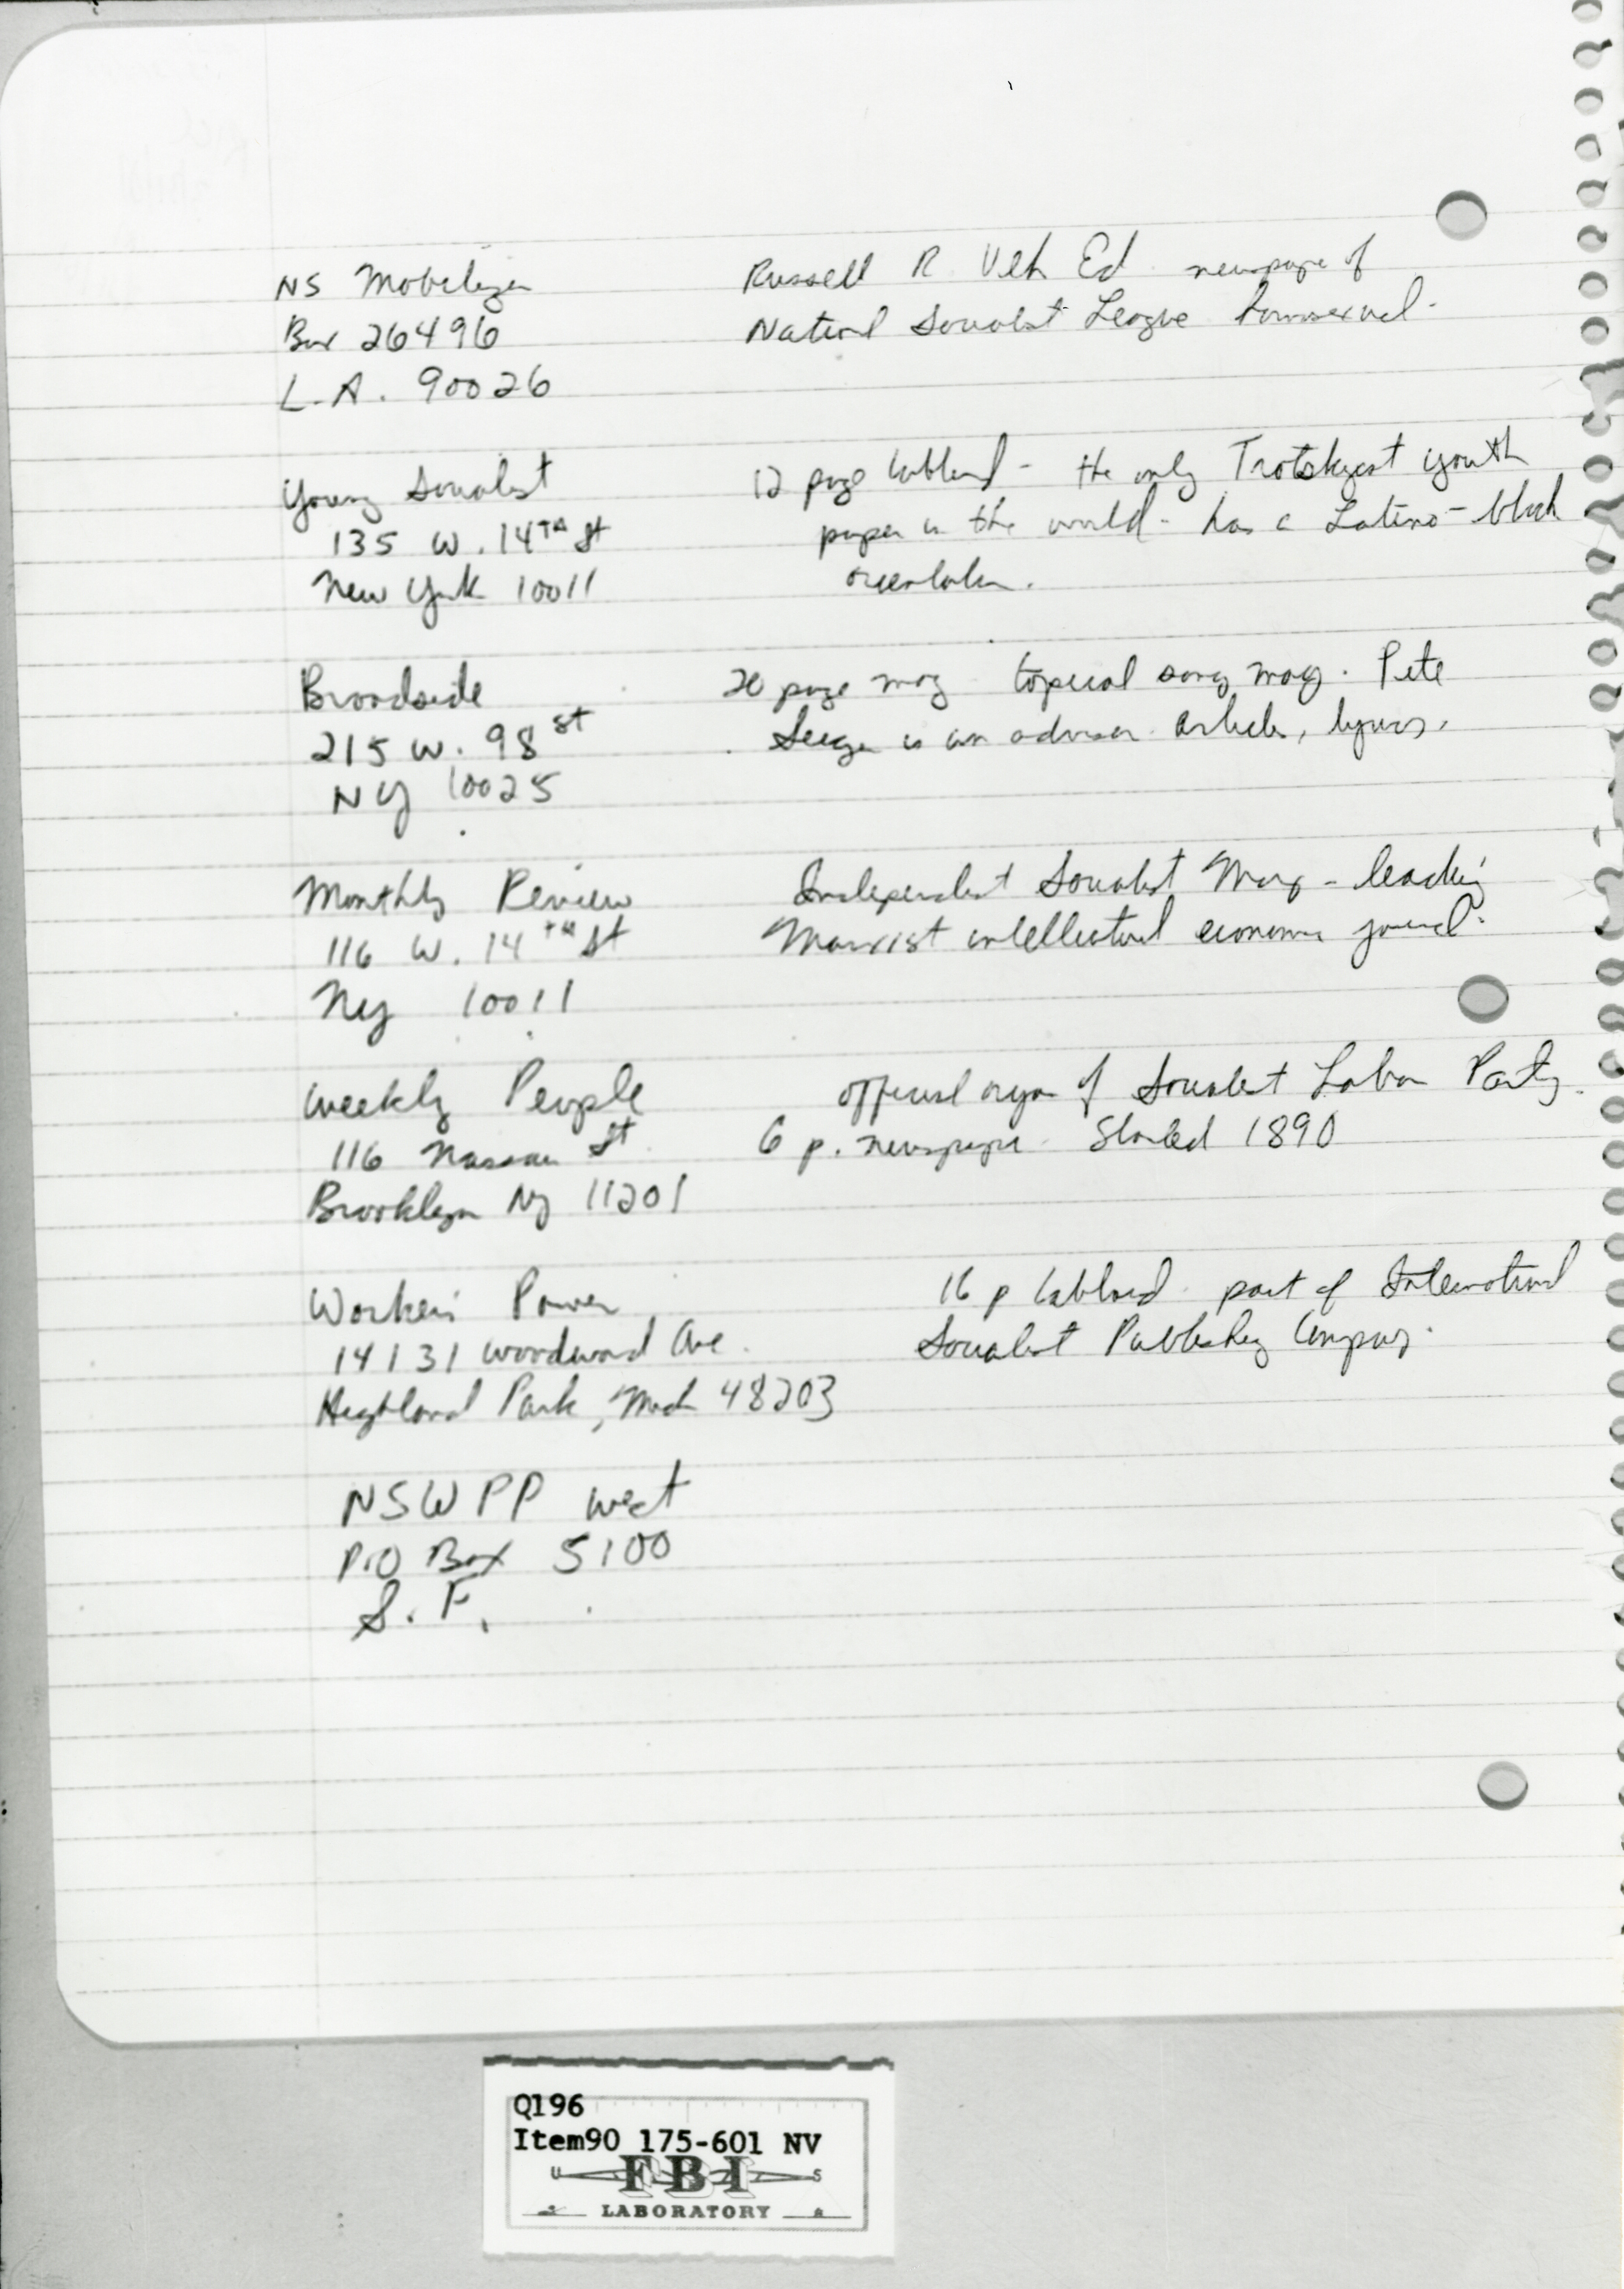 NS Mobilizer
Box 26496
L.A. 90026
Russell R. Veh Ed. newspape of
National Socialist League homosexual.
Young Socialist
135 W. 14TH St
New York 10011
12 page tabloid - the only Trotskyist youth
paper in the world - has a Latino - black
orientation.
Broadside
215 W. 98 St
NY 10025
20 page mag. topical song mag. Pete
Seeger is an advisor. Article, lyrics.
Monthly Review
116 W. 14TH St
NY 10011
Independent Socialist Mag - leading
Marxist intellectual economic journal.
Weekly People
116 Nassau St.
Brooklyn NY 11201
official organ of Socialist Labor Party.
6 p. newspaper. Started 1890
Workers' Power
14131 Woodward Ave.
Highland Park, Mich 48203
16 p tabloid. part of International
Socialist Publishing Company.
NSWPP West
P.O Box 5100
S. F.
Q196
Item90 175-601 NV
U FBI S
LABORATORY